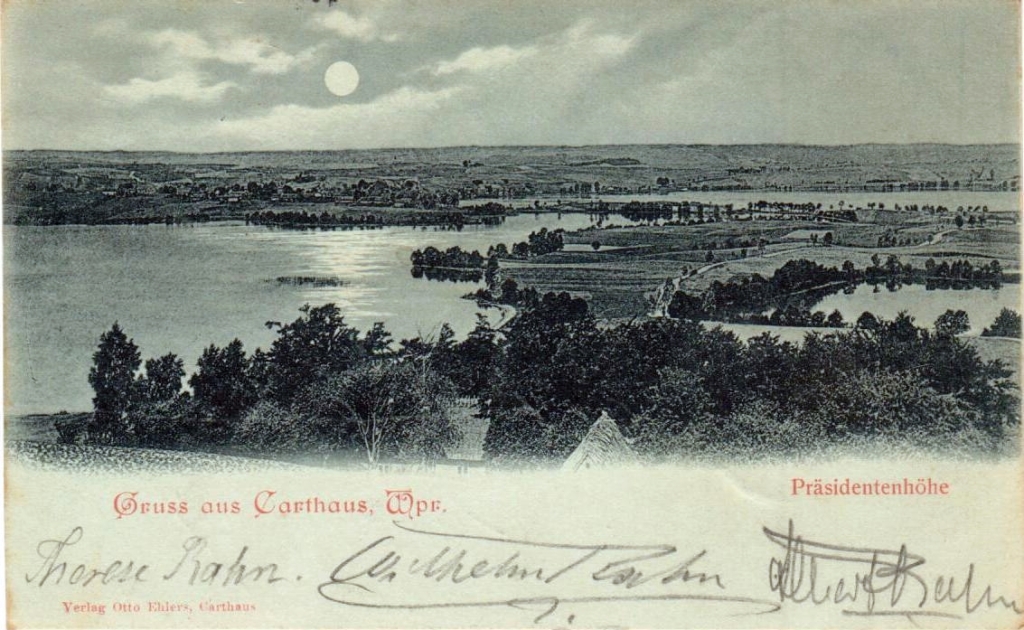 Präsidentenhöhe
Gruss aus Carthaus, Wpr.
Therese Rahn. Wilhelm Rahn Albert Rahn
Verlag Otto Ehlers, Carthaus